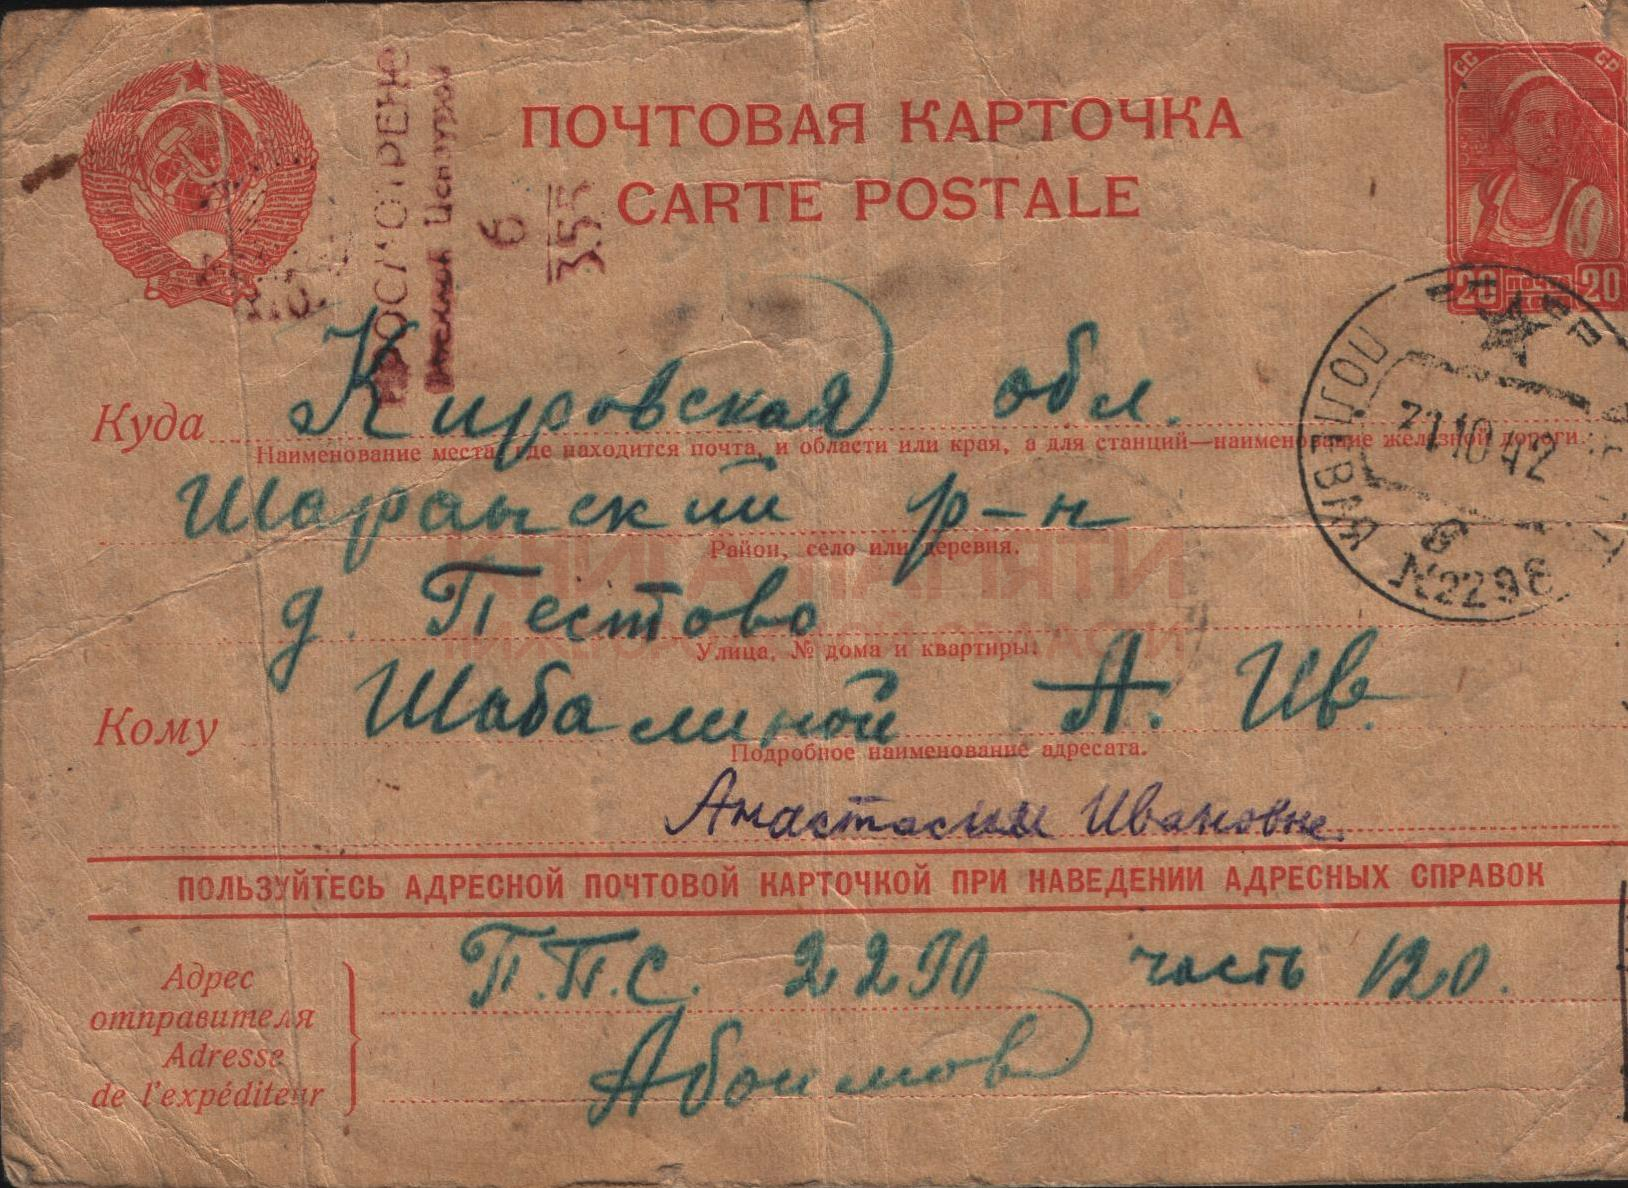 ПОЧТОВАЯ КАРТОЧКА
CARTE POSTALE
СС СР
20 ПОЧТА 20
ПРОСМОТРЕНО
Военной Цензурой
6
355
Куда Кировская обл.
Наименование места, где находится почта, и области или края, а для станций—наименование железной дороги.
Шарангский р-н
Район, село или деревня.
д. Пестово
Улица, № дома и квартиры.
Кому Шабалиной А. Ив.
Подробное наименование адресата.
Анастасии Ивановне
21 10 42
№2296
ПОЛЬЗУЙТЕСЬ АДРЕСНОЙ ПОЧТОВОЙ КАРТОЧКОЙ ПРИ НАВЕДЕНИИ АДРЕСНЫХ СПРАВОК
Адрес
отправителя
Adresse
de l'expéditeur
П.П.С. 2290 часть 120.
Абоимов